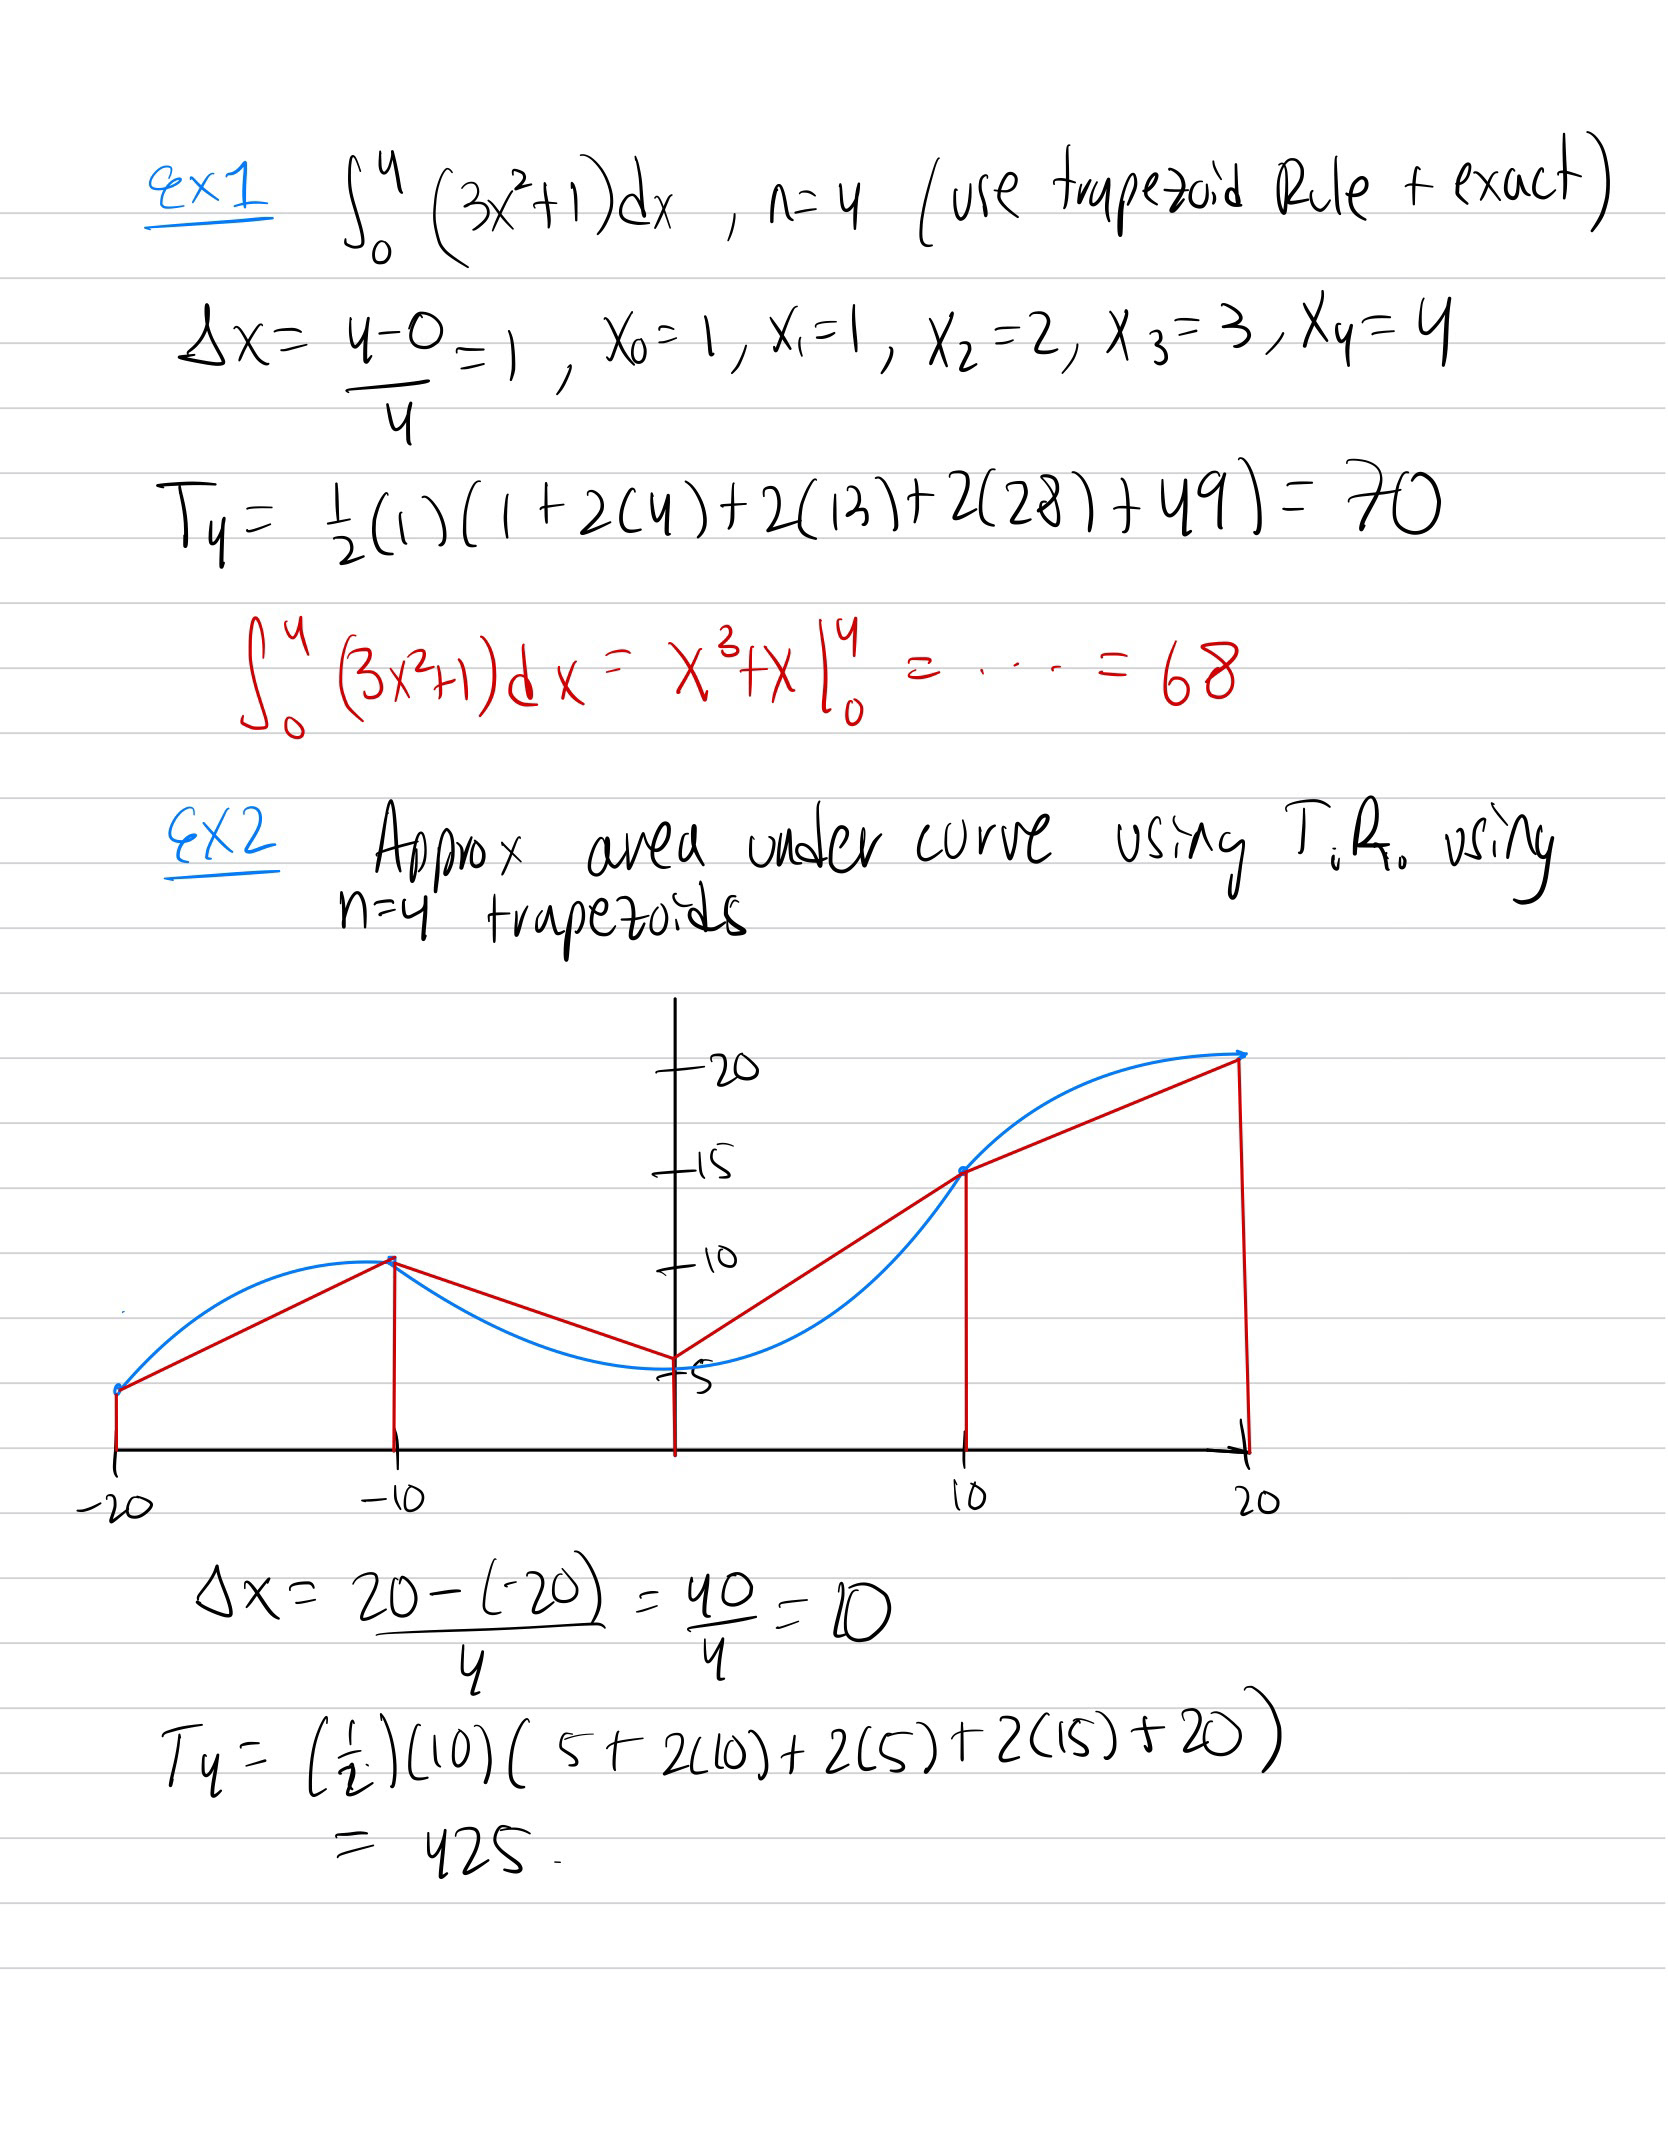 ex1 ∫₀⁴ (3x²+1)dx , n=4 (use trapezoid Rule + exact)
Δx = (4-0)/4 = 1 , x₀=1, x₁=1, x₂=2, x₃=3, x₄=4
T₄ = ½(1)(1+2(4)+2(13)+2(28)+49) = 70
∫₀⁴ (3x²+1)dx = x³+x |₀⁴ = ... = 68
ex2 Approx area under curve using T.R. using
n=4 trapezoids
20
15
10
5
-20 -10 10 20
Δx = (20-(-20))/4 = 40/4 = 10
T₄ = (½)(10)(5+2(10)+2(5)+2(15)+20)
= 425.